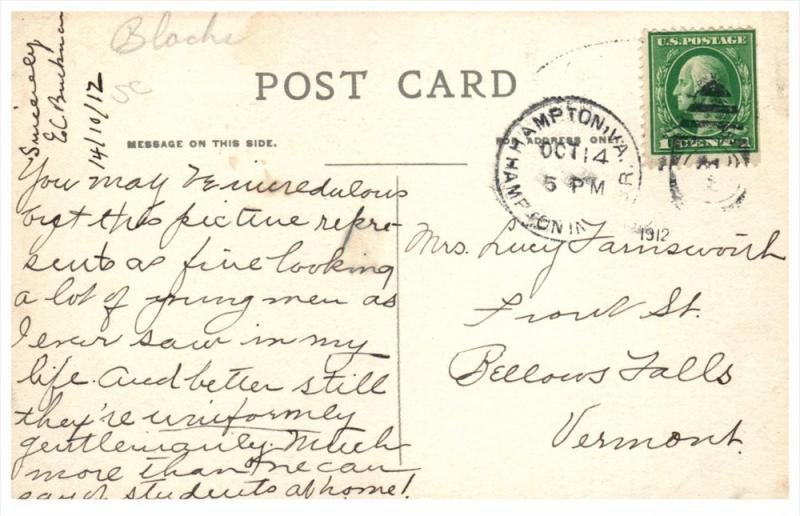 Blacks
5c
Sincerely
14/10/12
POST CARD
U.S. POSTAGE
MESSAGE ON THIS SIDE.
FOR ADDRESS ONLY
HAMPTON, VA.
OCT 14
5 PM
1912
HAMPTON IN
You may be incredulous
but this picture repre-
sents as fine looking
a lot of young men as
I ever saw in my
life. And better still
they're uniformly
gentlemanly. Much
more than one can
say of students at home!
Mrs. Lucy Farnsworth
Front St.
Bellows Falls
Vermont.